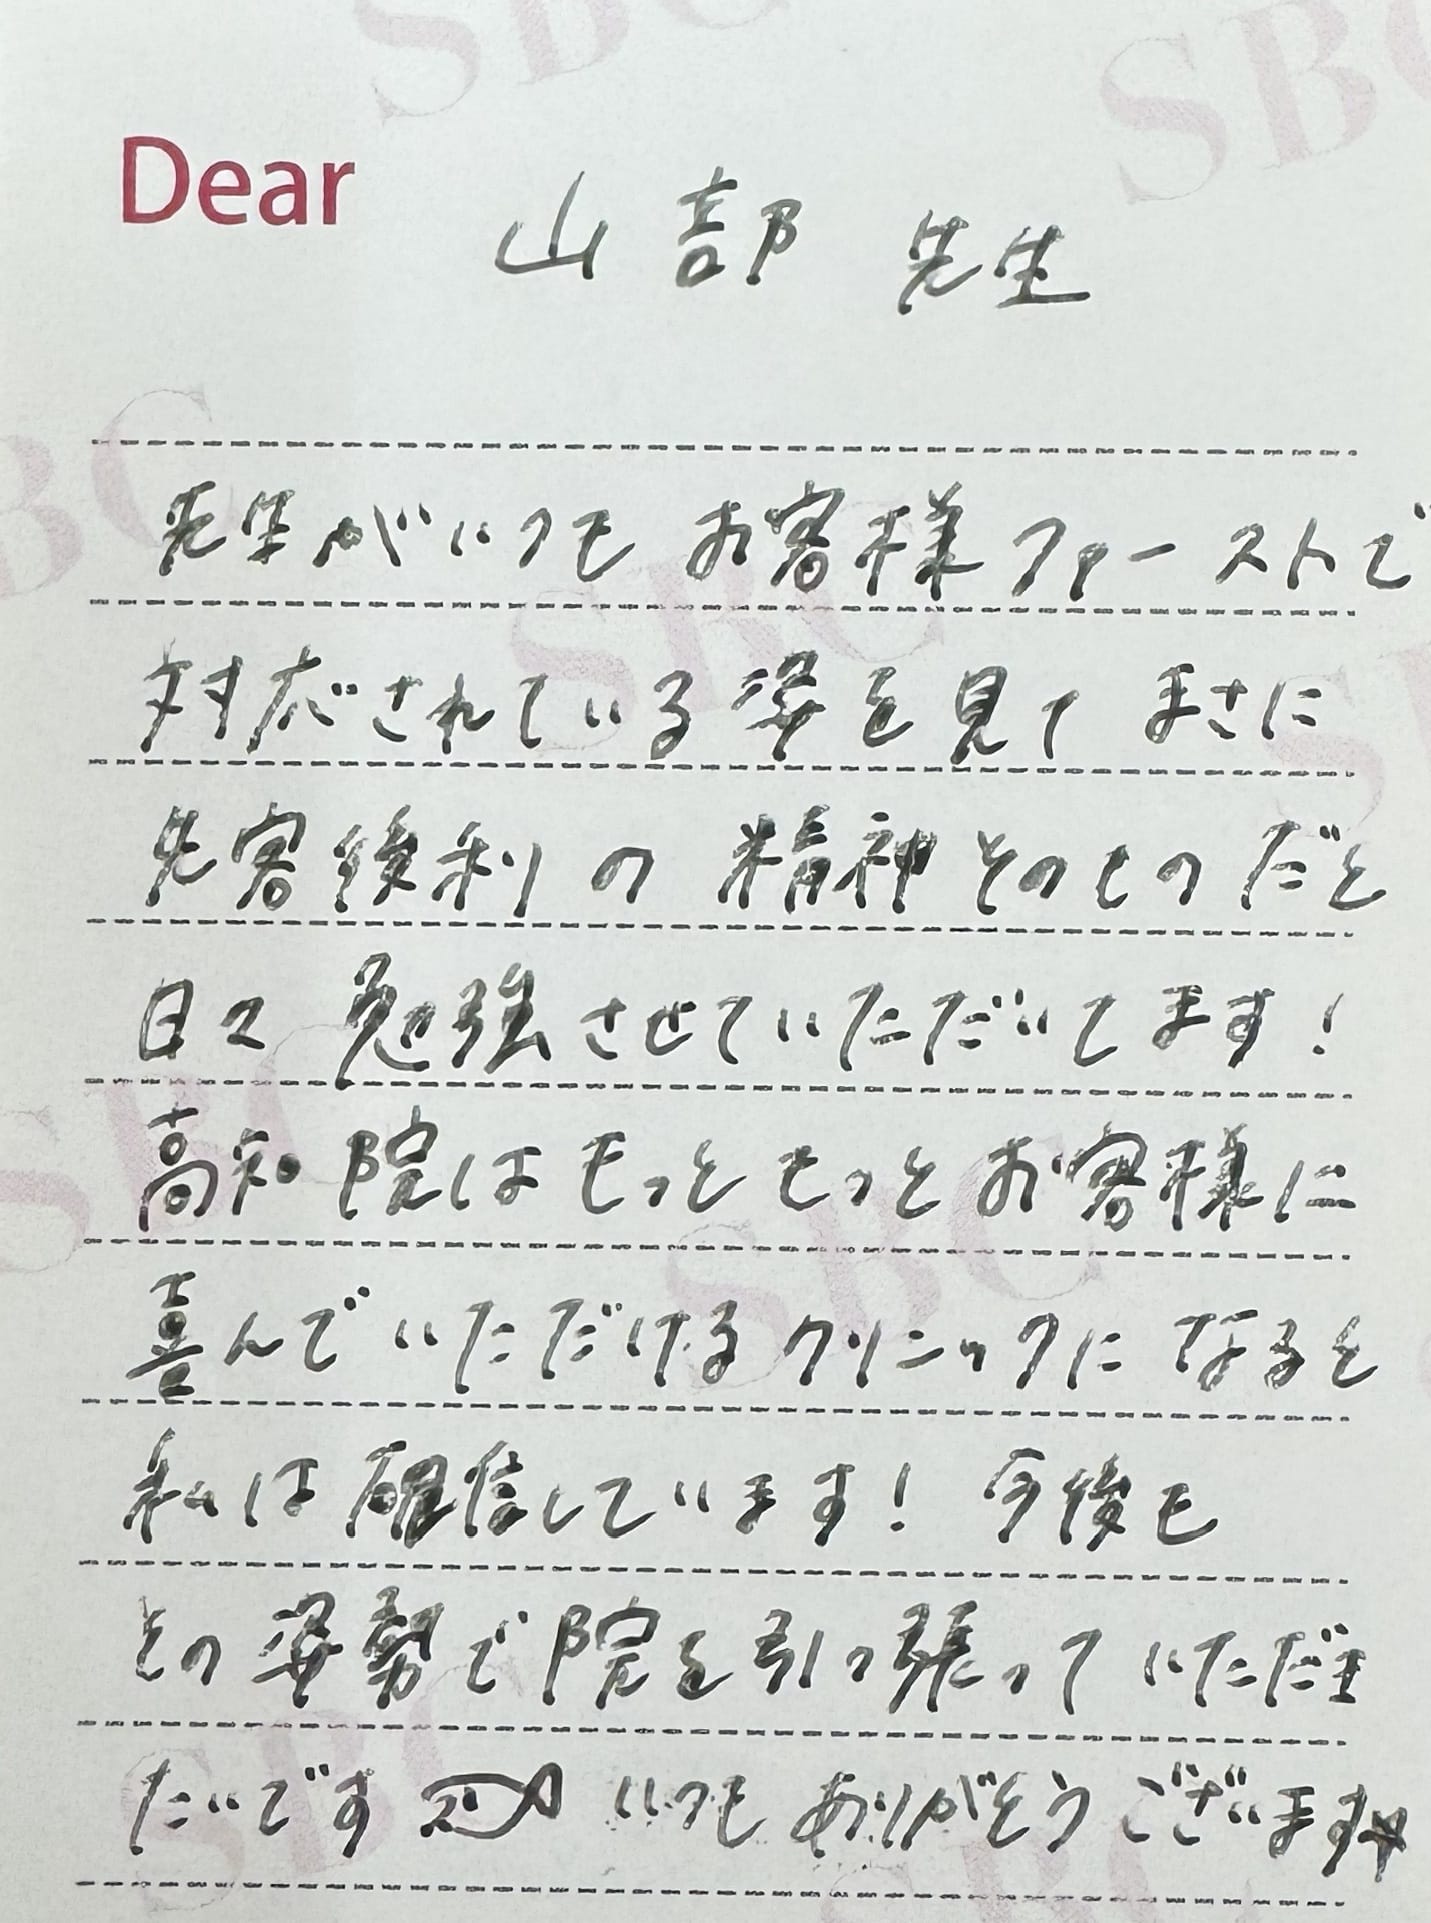 Dear 山部 先生
先生がいつも お客様ファーストで
対応されている姿を見て まさに
先客後利の 精神そのものだと
日々 勉強させていただいてます！
高知院はもっともっとお客様に
喜んでいただけるクリニックになると
私は確信しています！ 今後も
その姿勢で院を引っ張っていただき
たいです いつもありがとうございます
SBC